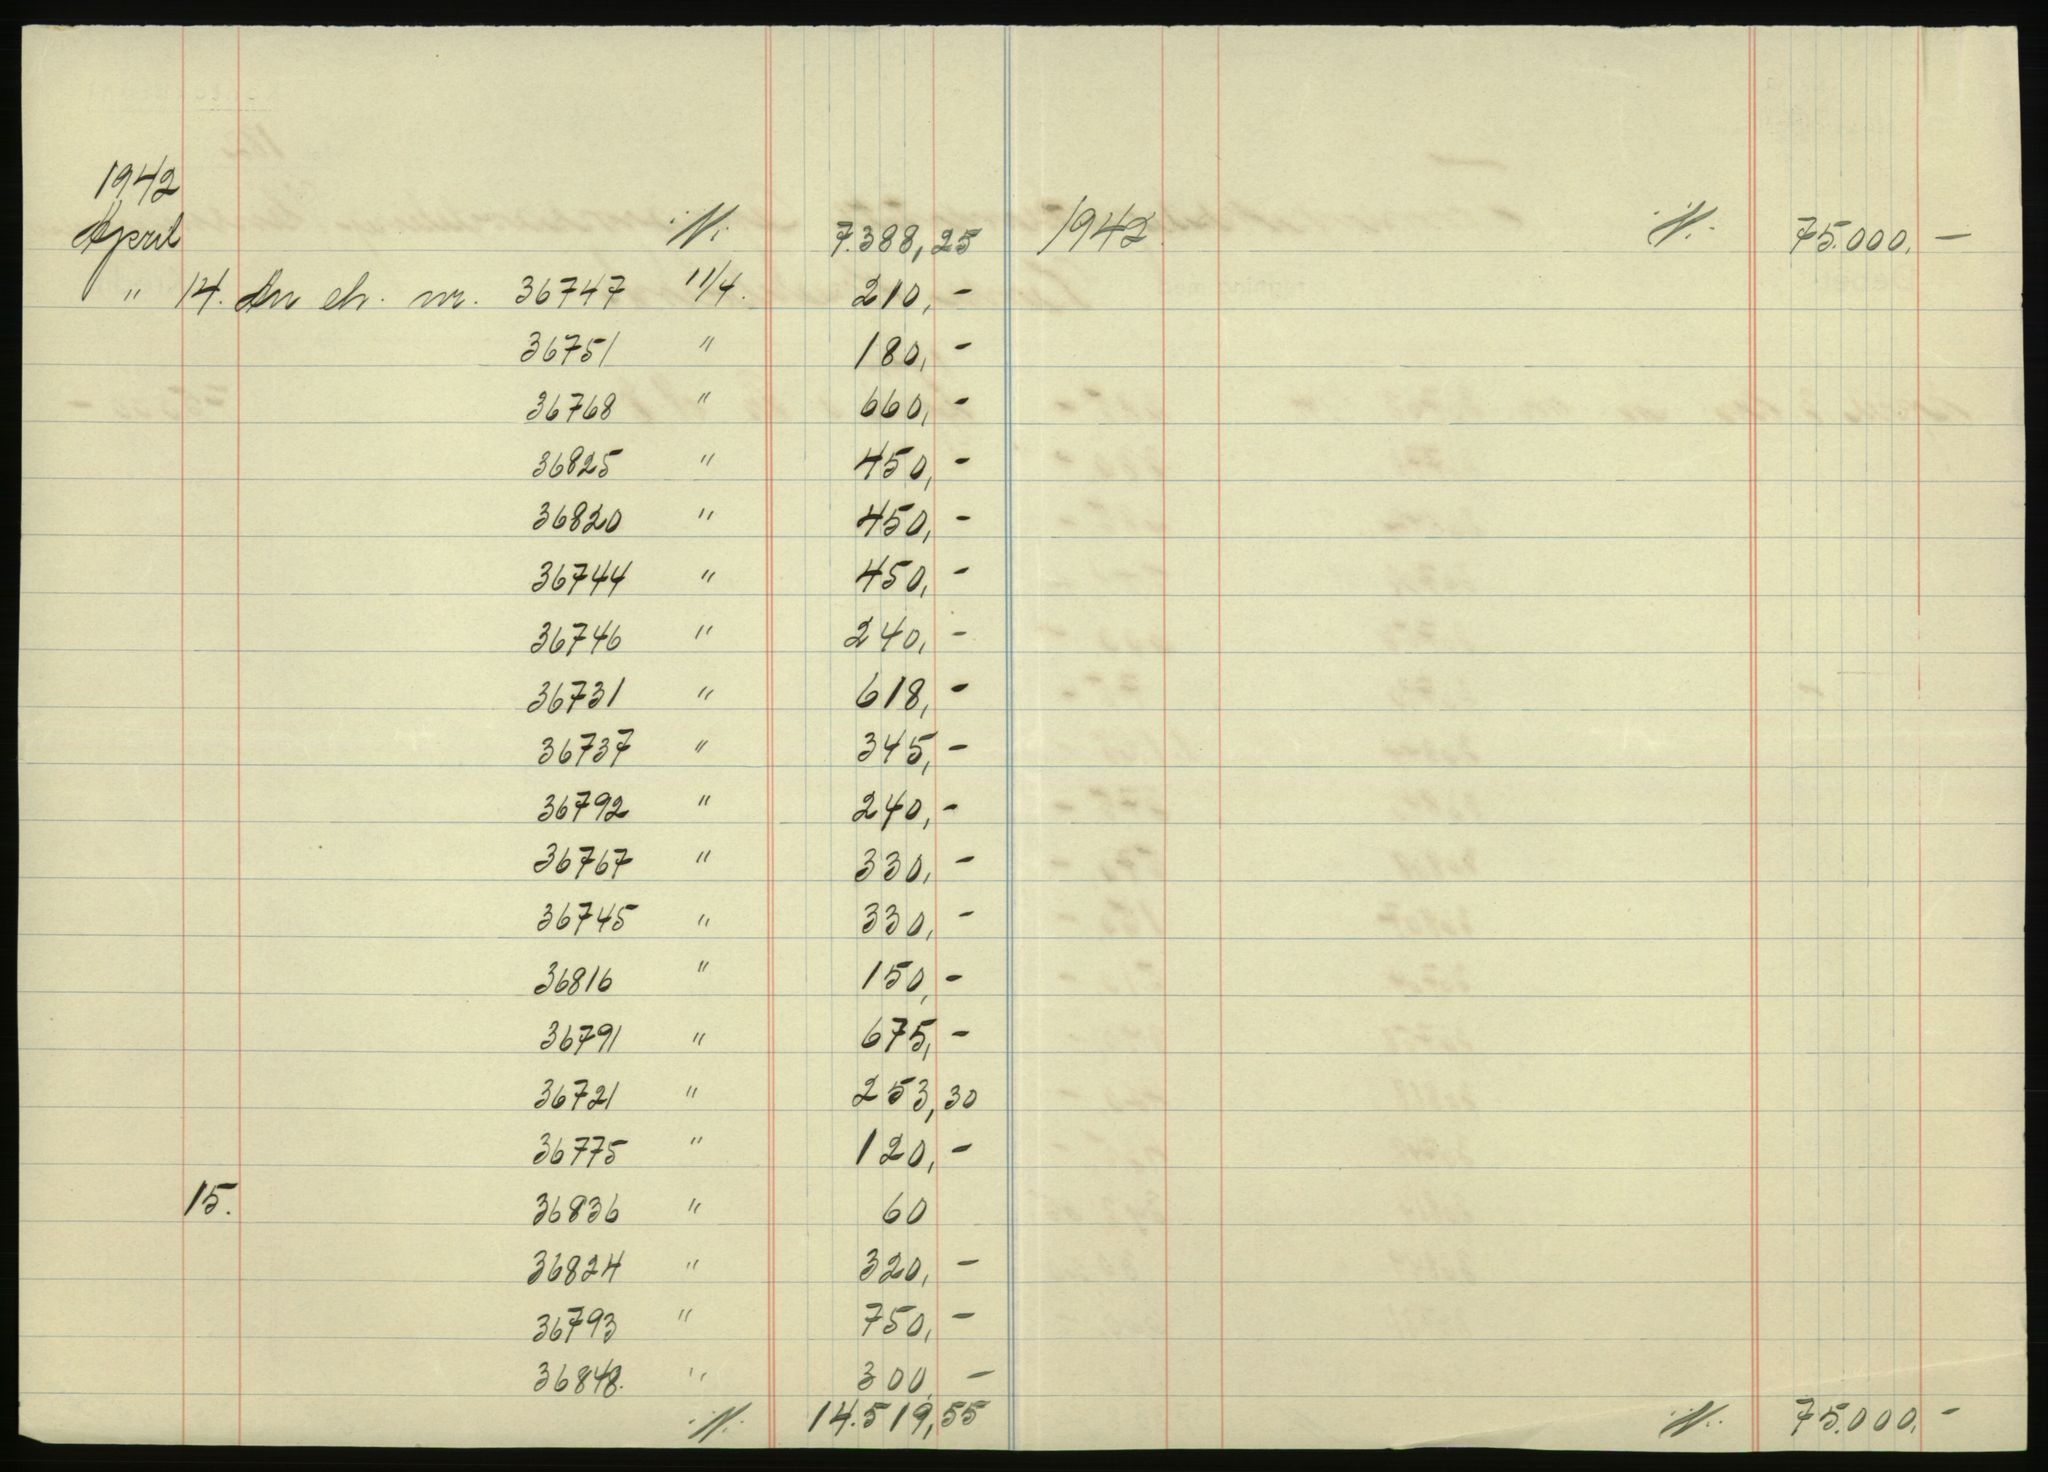 1942
April ./. 7.388,25 1942 ./. 75.000,-
" 14. An ch. nr. 36747 11/4. 210,-
36751 " 180,-
36768 " 660,-
36825 " 450,-
36820 " 450,-
36744 " 450,-
36746 " 240,-
36731 " 618,-
36737 " 345,-
36792 " 240,-
36767 " 330,-
36745 " 330,-
36816 " 150,-
36791 " 675,-
36721 " 253,30
36775 " 120,-
15. 36836 " 60
36824 " 320,-
36793 " 750,-
36848. " 300,-
./. 14.519,55 ./. 75.000,-